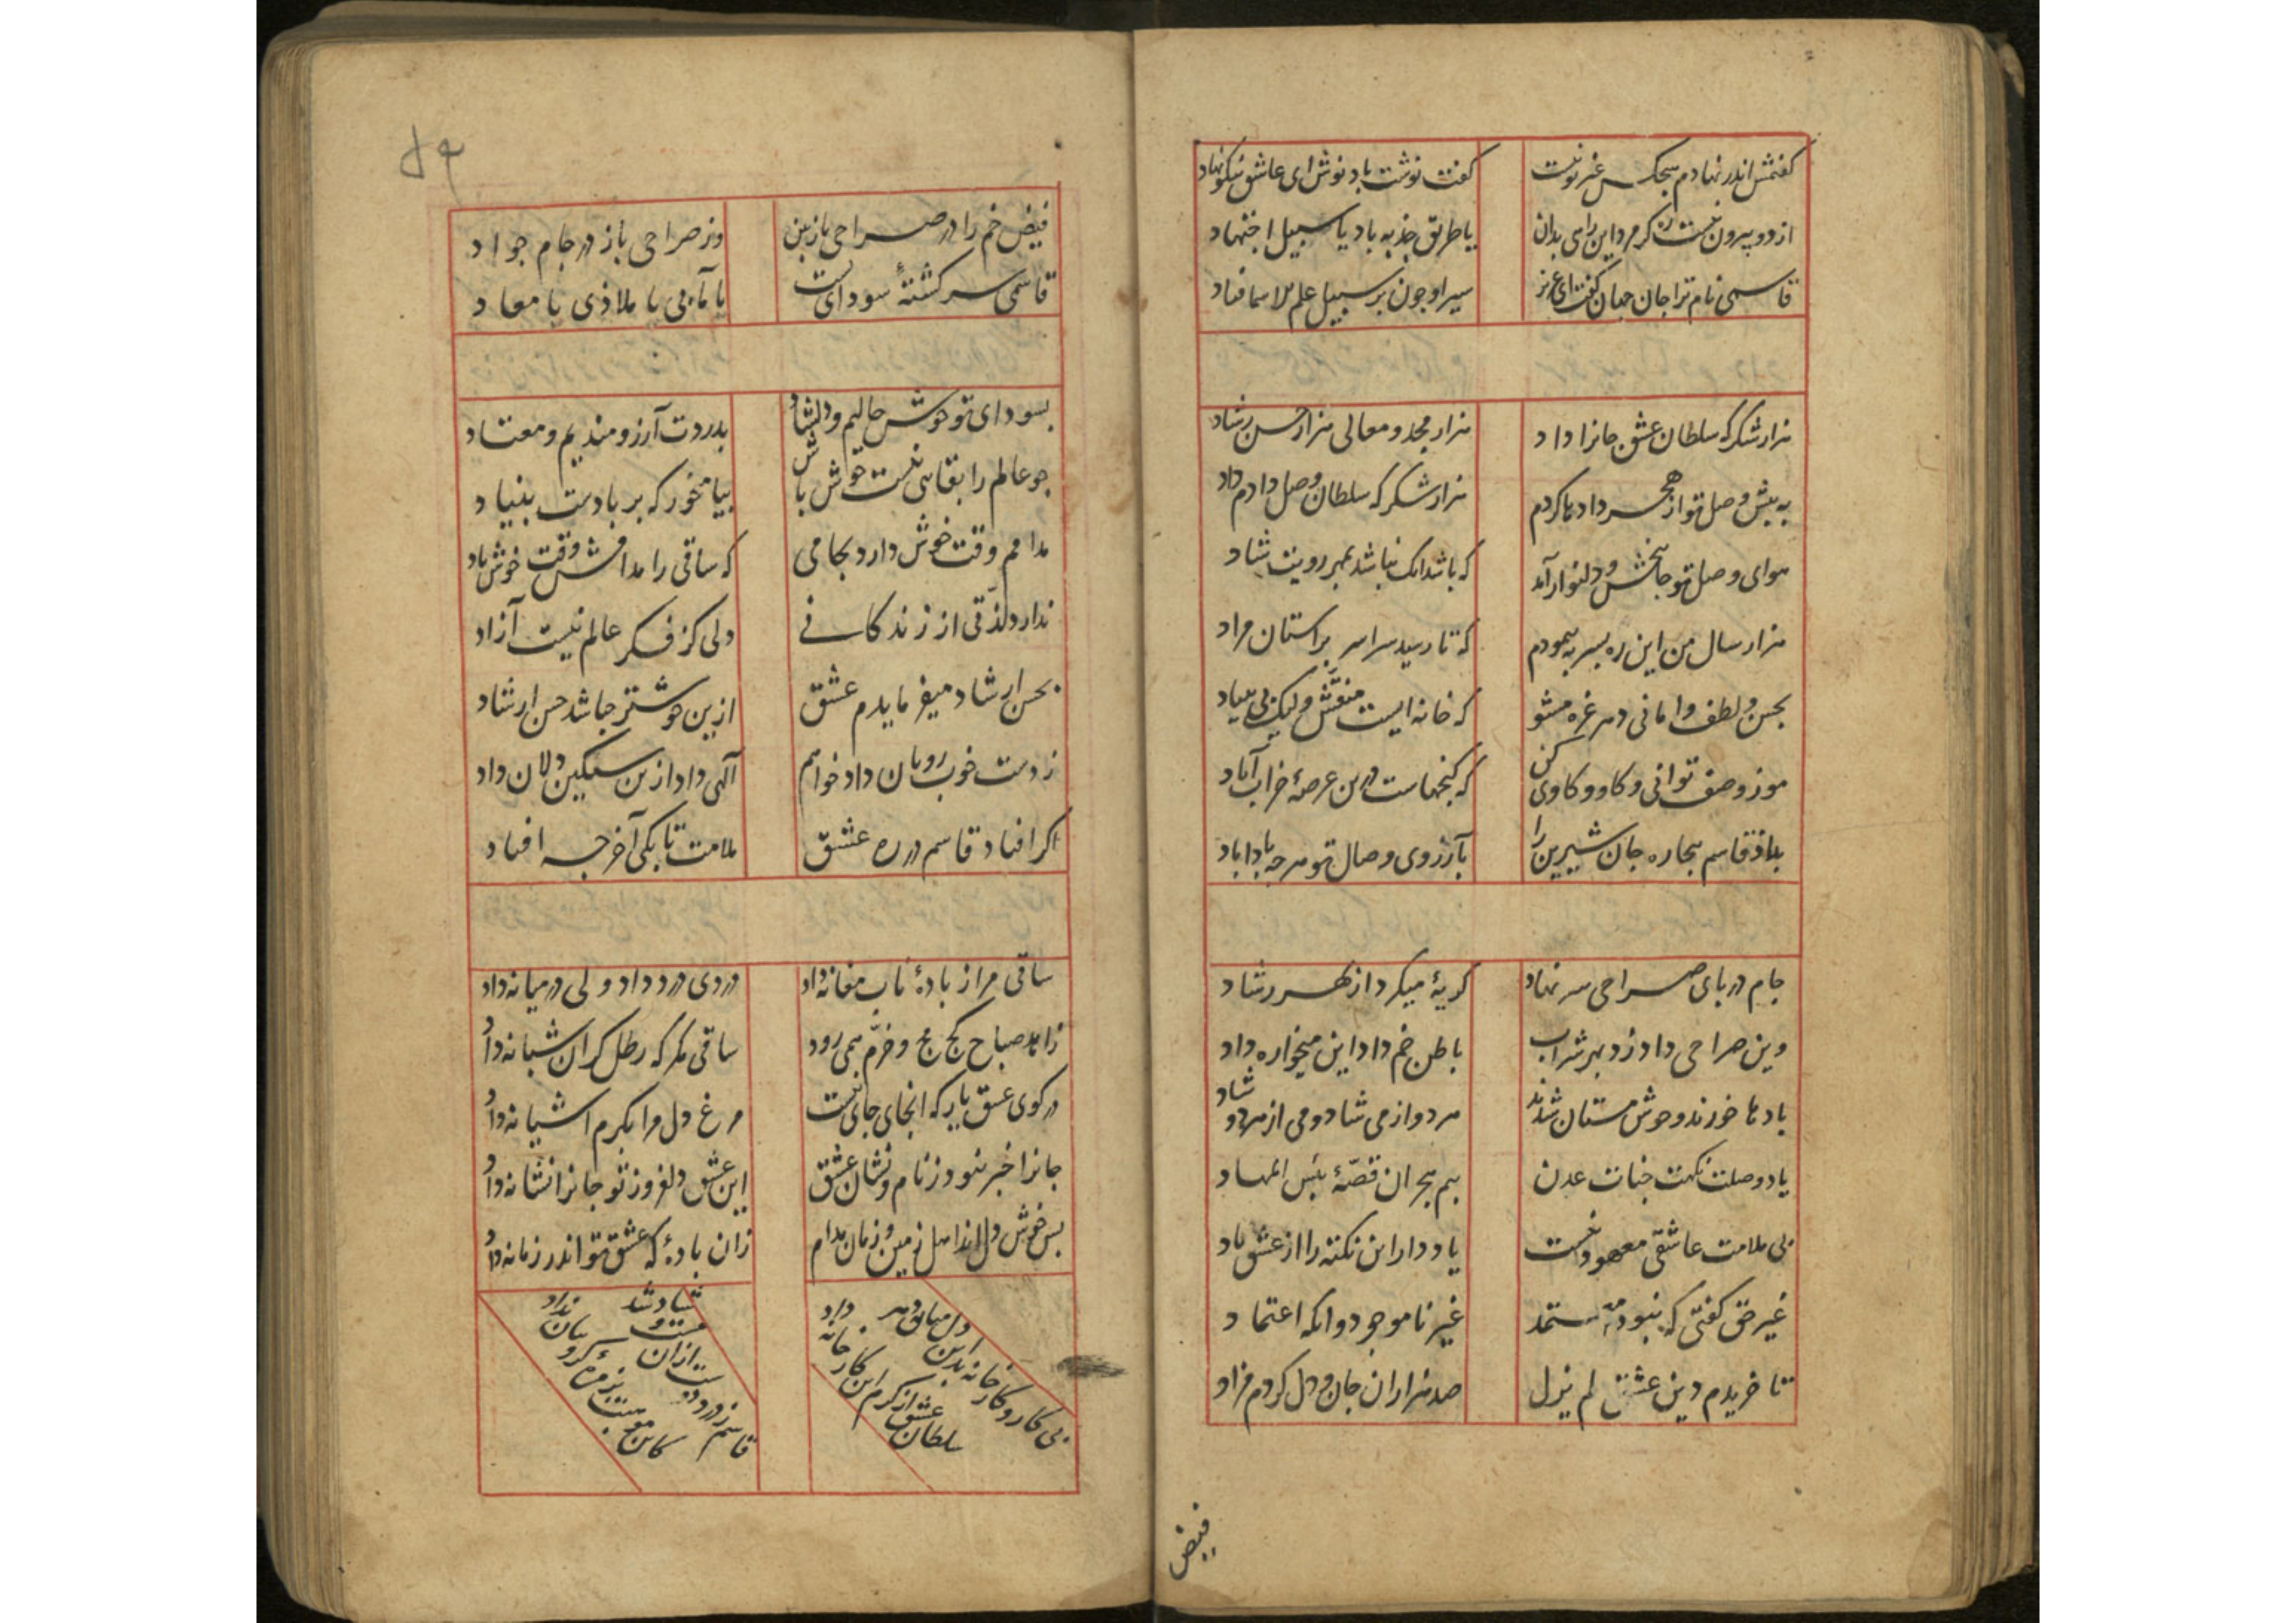 گفتمش اندر نهادم هیچکس غیر تو نیست
گفت نوشت باد نوش ای عاشق نیکو نهاد
از دو بیرون نیست ره کر مرد این راهی بدان
یا طریق جذبه باد یا سبیل اجتهاد
قاسمی نام ترا جان جهان گفت ای عزیز
سیر او چون بر سبیل علم الاسما فتاد
هزار شکر که سلطان عشق جانرا داد
هزار مجد و معالی هزار حسن رشاد
به پیش وصل تو از هجر دادها کردم
هزار شکر که سلطان وصل دادم داد
هوای وصل تو جانبخش و دلنواز آمد
که باشد انک نباشد بمهر رویت شاد
هزار سال من این ره بسر به پیمودم
که تا رسید سراسر بر استان مراد
بحسن و لطف و امانی دهر غره مشو
که خانه ایست منقش ولیک بی بنیاد
کن
که کنجهاست درین عرصهٔ خراب آباد
بداد قاسم بیچاره جان شیرین را
بآرزوی وصال تو هرچه بادا باد
جام در پای صراحی سر نهاد
گریهٔ میکرد از بهر رشاد
وین صراحی داد زد بهر شراب
باطن خم داد این میخواره داد
بادها خوردند و خوش مستان شدند
هر دو از می شاد و می از هر دو شاد
یاد وصلت نکهت جنات عدن
بیم هجران قصّهٔ بئس المهاد
بی ملامت عاشقی معهود نیست
یاد دار این نکته را از عشق یاد
غیر حق گفتی که نبود مستمد
غیر ناموجود وانکه اعتماد
تا خریدم دین عشق لم یزل
صد هزاران جان و دل کردم مزاد
فیض
۵۹
فیض خم را در صراحی باز بین
وز صراحی باز در جام جواد
قاسمی سرگشتهٔ سودای تست
یا مآبی یا ملاذی یا معاد
بسودای تو خوش حالیم و دلشاد
بدردت آرزومندیم و معتاد
چو عالم را بقایی نیست خوش باش
بیا می خور که بر بادست بنیاد
مدامم وقت خوش دارد بجامی
که ساقی را مدامش وقت خوش باد
ندارد لذّتی از زندگانی
دلی کز فکر عالم نیست آزاد
بحسن ارشاد میفرمایدم عشق
ازین خوشتر چباشد حسن ارشاد
ز دست خوب رویان داد خواهم
آلهی داد ازین سنگین دلان داد
اگر افتاد قاسم در ره عشق
ملامت تا بکی آخر چه افتاد
ساقی مرا ز بادهٔ ناب مغانه داد
دردی درد داد ولی در میانه داد
زاهد صباح کج مج و خرّم همی رود
ساقی مکر که رطل کران شبانه داد
در کوی عشق یار که انجای جای نیست
مرغ دل مرا بکرم اشیانه داد
جانرا خبر نبود ز نام و نشان عشق
این عشق دلفروز تو جانرا نشانه داد
بس خوش دل اند اهل زمین و زمان مدام
زان بادهٔ که عشق تو اندر زمانه داد
بی کار و کارخانه بد این دل میان دهر
سلطان عشق از کرم این کارخانه داد
قاسم ز درد دوست ازان مست و شاد شد